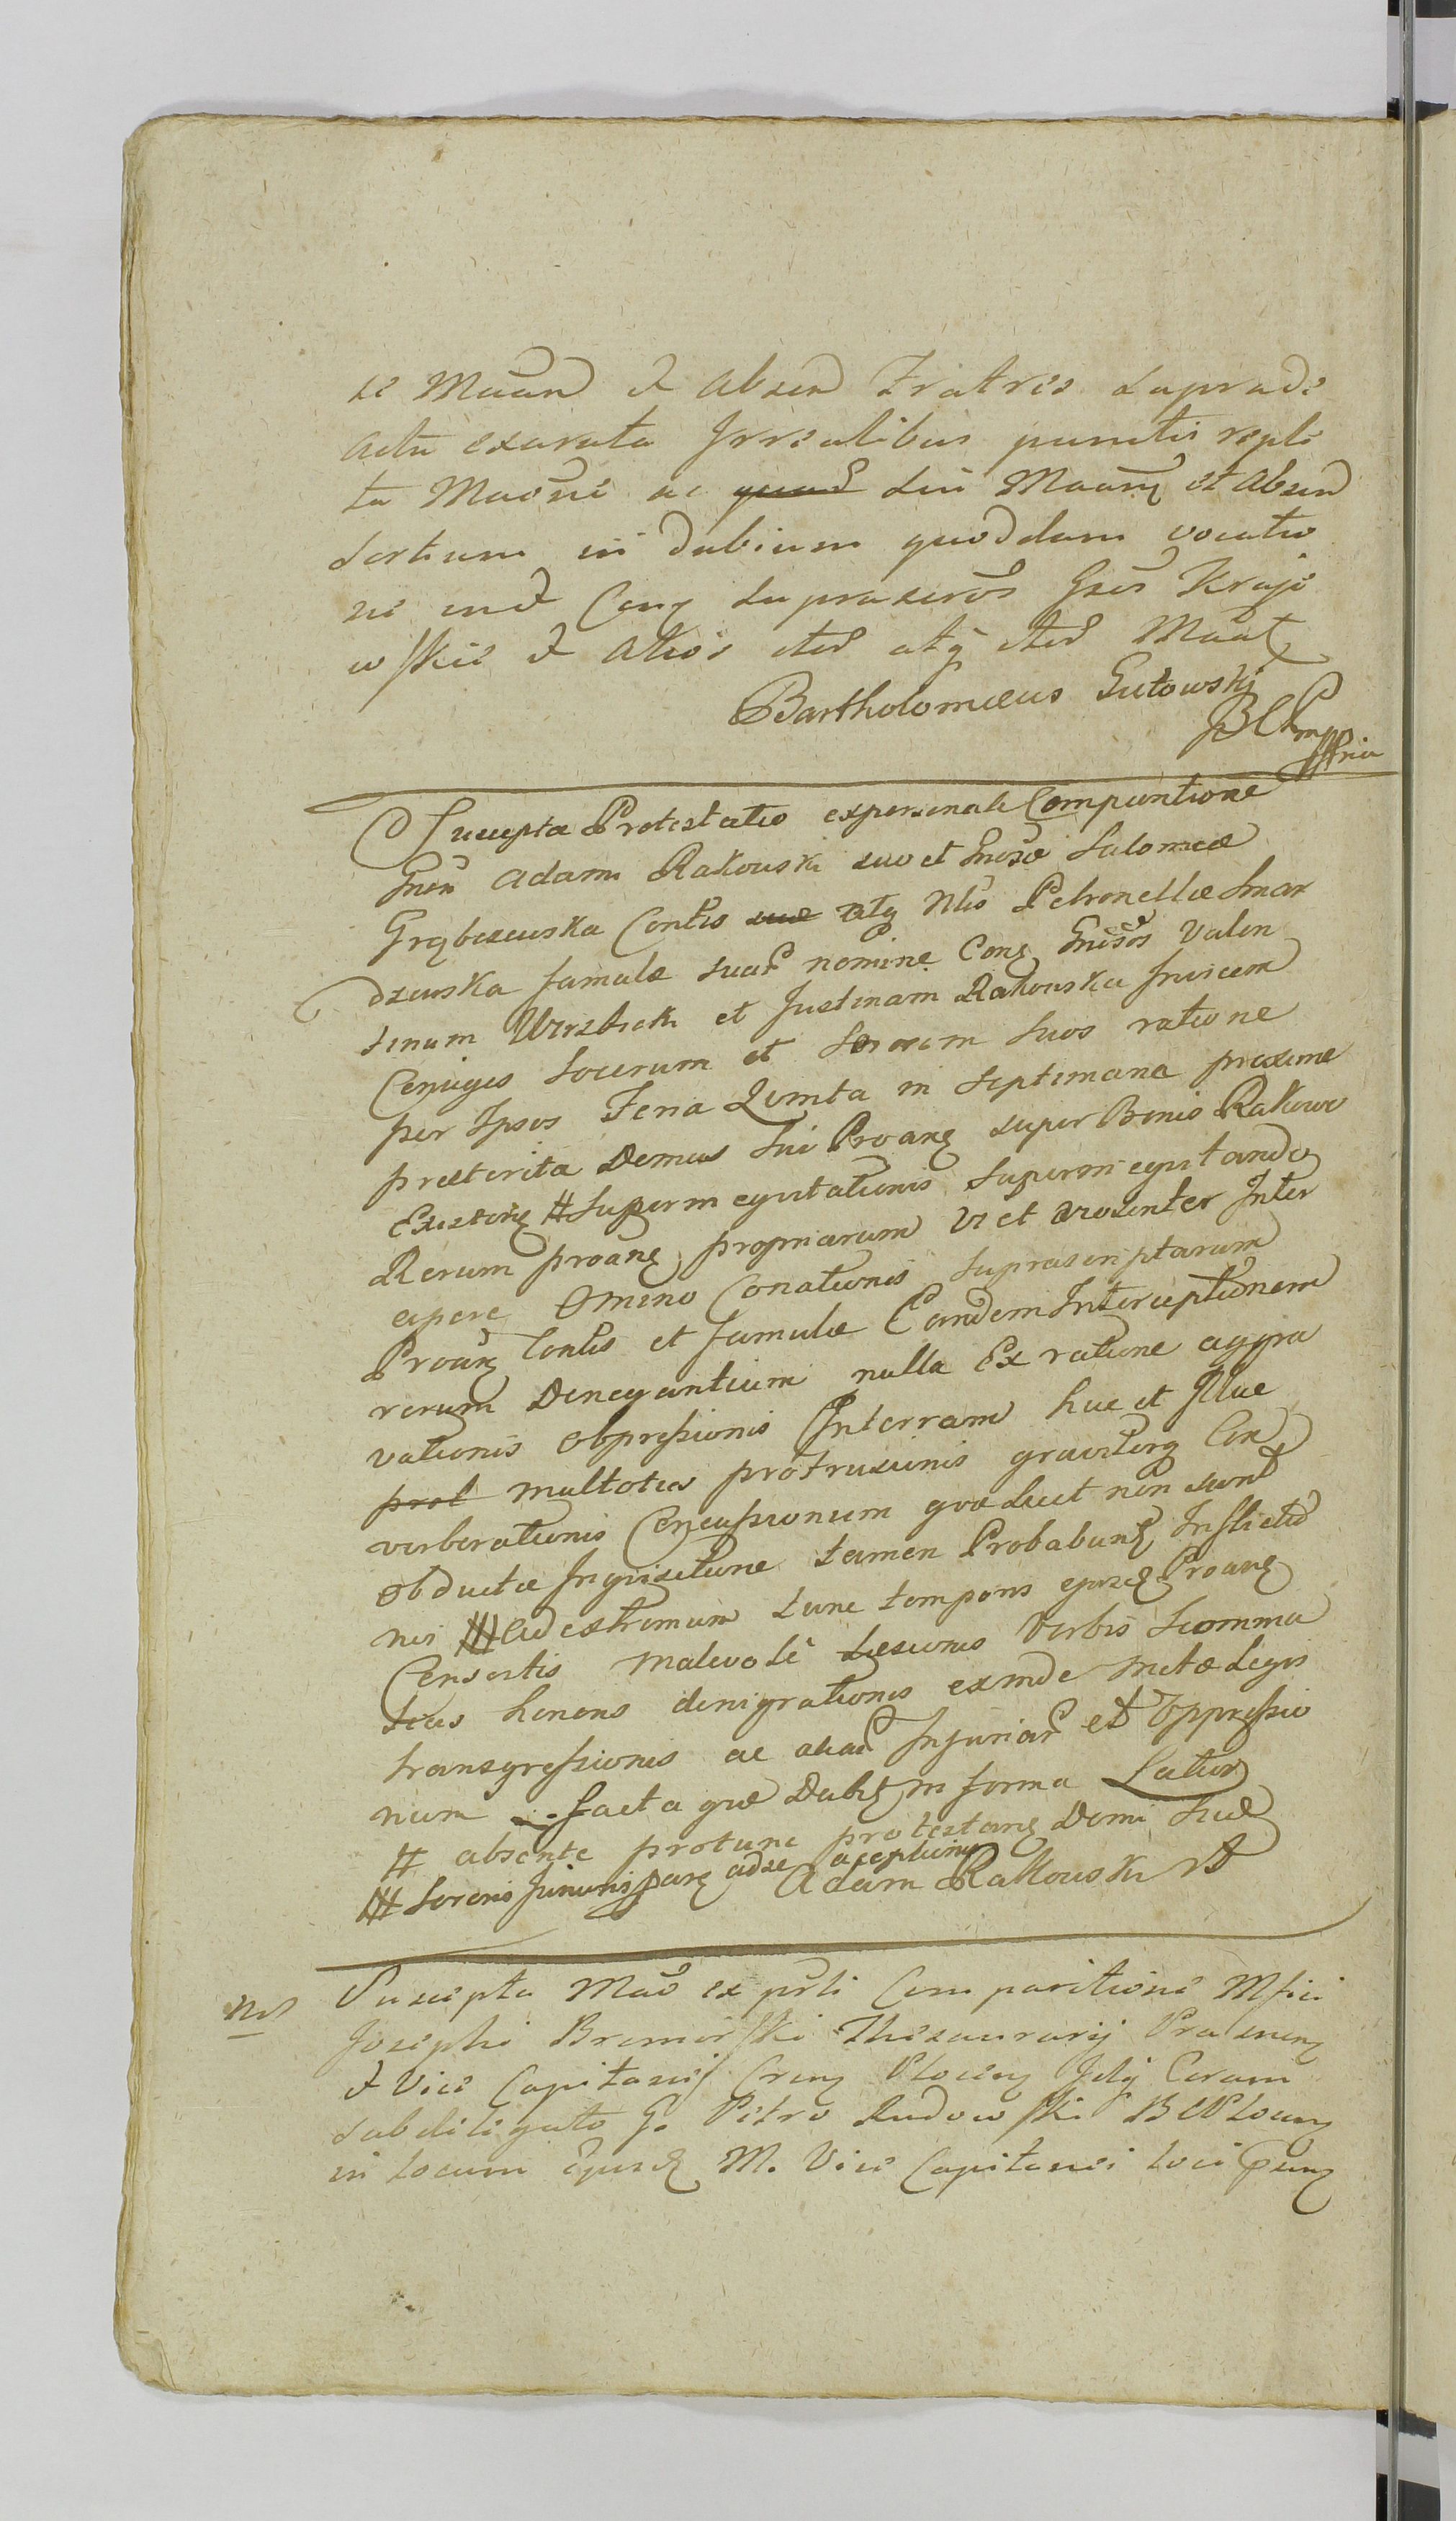 se Maan et absen Fratres suprade
actu exarata Irrealibus punctis reple
ta Maõne ac quad sui Maanz et absen
sortium in dubium quoddam vocatio
ne ind Conz suprascros Gsos Kraje
wskie et alios itd atq itd Maat
Bartholomæus Gutowski
BCP mpp
Suscepta Protestatio ex personali Compuntione
Gnen Adami Rakowski suo et Gnosæ Salomeæ
Grębczewska Contis suæ atq Nlis Petronellæ Smar
dzewska famulæ suar nomine Conz Gnosos Valen
tinum Wierzbicki et Justinam Rakowska Invicem
Conjuges Socerum et Sororem Suos ratione
per Ipsos Feria Quinta in Septimana proxime
præterita Domus Sui Proanz super Bonis Rakowo
Existenz # Superin equitationis superin equitando
Rerum proanz propriarum vi et violenter Inter
cipere Omino Conationis suprascriptarum
Proanz Contis et famulæ Eandem Interceptionem
rerum Denegantium nulla Ex ratione aggra
vationis obpressionis Interram huc et Illuc
prot multoties protrusionis graviterq Con
verberationis Concussionum quæ licet non sunt
obductæ Inquisitione tamen Probabunt Inflictio
nis ## ad extremum tunc temporis ejusd Proanz
Consortis malevole Læsionis verbis Scomma
ticis honoris denigrationis exinde metæ Legis
transgressionis ac aliar Injuriar et oppressio
num facta quæ Dabit in forma Latior
# absente protunc protestanz Domi Suæ
## Sororis Junioris parz ad se aceptionis
Adam Rakowski
Suscepta Mão ex prli Comparitione Mfici
Josephi Bromirski Thesaurarij Prasnenz
et Vice Capitanei Crenz Plocenz Jdij Coram
subdeligato G. Petro Rudowski BCPlocenz
in Locum Ejusd M. Vice Capitanei Loci